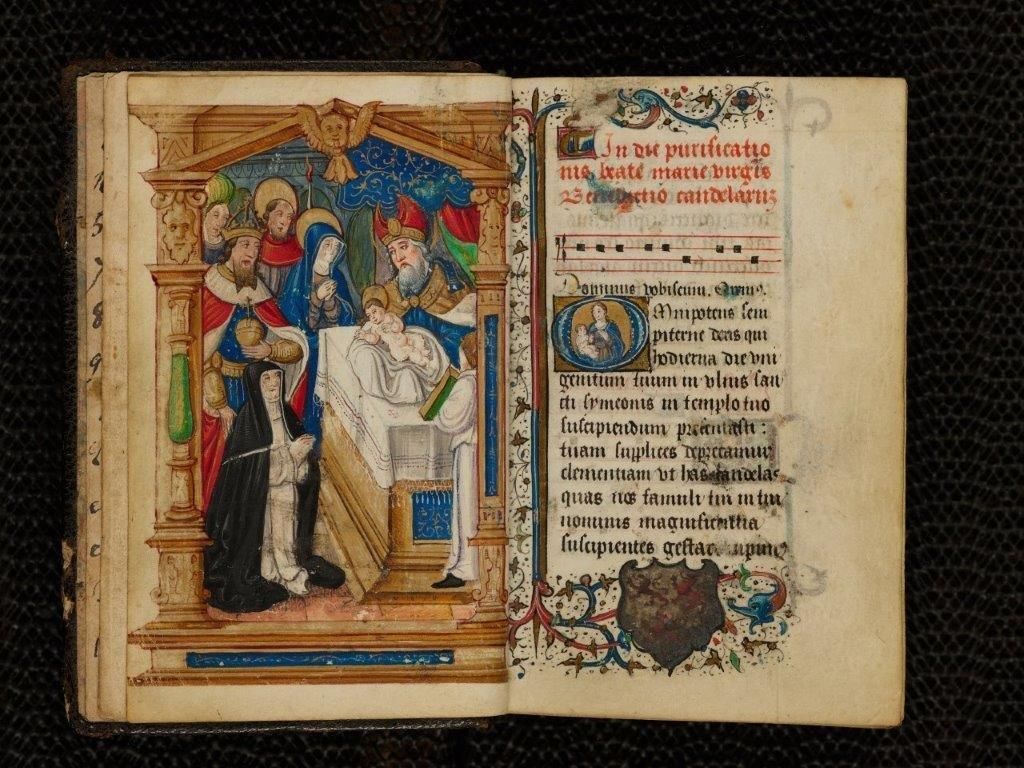 In die purificatio
nis beate marie virgis
Benedictio candelarum
Dominus vobiscum. Orem9.
Omnipotens sem
piterne deus qui
hodierna die vni
genitum tuum in vlnis san
cti symeonis in templo tuo
suscipiendum presentasti :
tuam supplices deprecamur
clementiam vt has candelas
quas nos famuli tui in tui
nominis magnificentia
suscipientes gestar